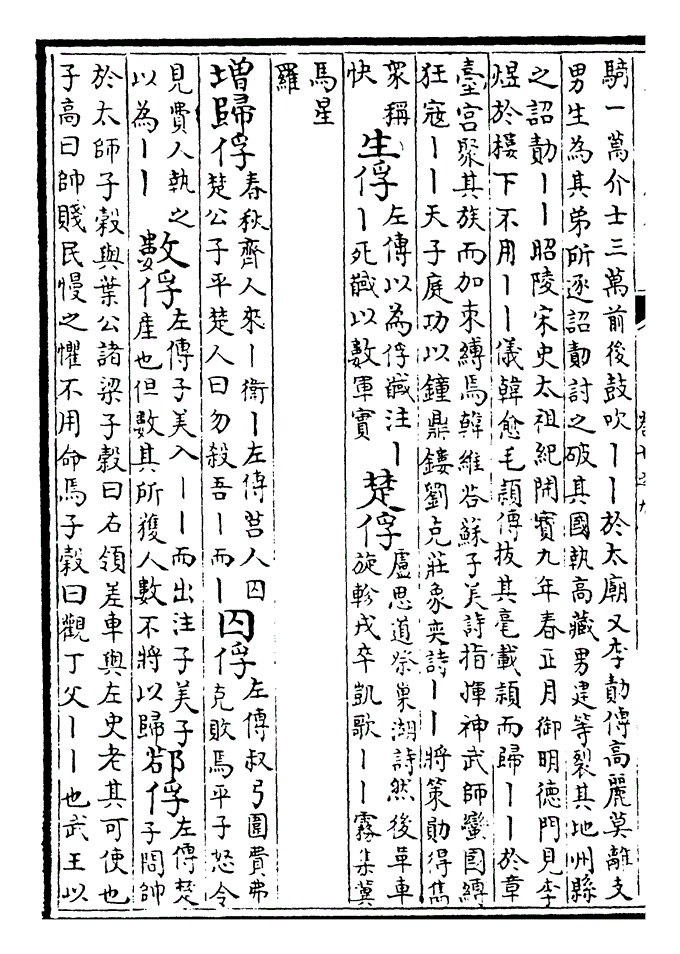 騎一萬介士三萬前後鼓吹丨丨於太廟又李勣傳高麗莫離支
男生為其弟所逐詔勣討之破其國執高藏男建等裂其地州縣
之詔勣丨丨昭陵宋史太祖紀開寶九年春正月御明德門見李
煜於樓下不用丨丨儀韓愈毛頴傳拔其毫載頴而歸丨丨於章
臺宮聚其族而加束縛焉韓維答蘇子美詩指揮神武師蠻囿縛
狂寇丨丨天子庭功以鐘鼎鏤劉克莊象奕詩丨丨將策勛得雋
衆稱
快
生俘
左傳以為俘馘注丨
丨死馘以數軍實
楚俘
盧思道祭巢湖詩然後單車
旋軫戎卒凱歌丨丨霧集冀
馬星
羅
增歸俘
春秋齊人來丨衞丨左傳莒人囚
楚公子平楚人曰勿殺吾丨而丨
囚俘
左傳叔弓圍費弗
克敗焉平子怒令
見費人執之
以為丨丨
數俘
左傳子美入丨丨而出注子美子
產也但數其所獲人數不將以歸
鄀俘
左傳楚
子問帥
於太師子穀與葉公諸梁子穀曰右領差車與左史老其可使也
子高曰帥賤民慢之懼不用命焉子穀曰觀丁父丨丨也武王以